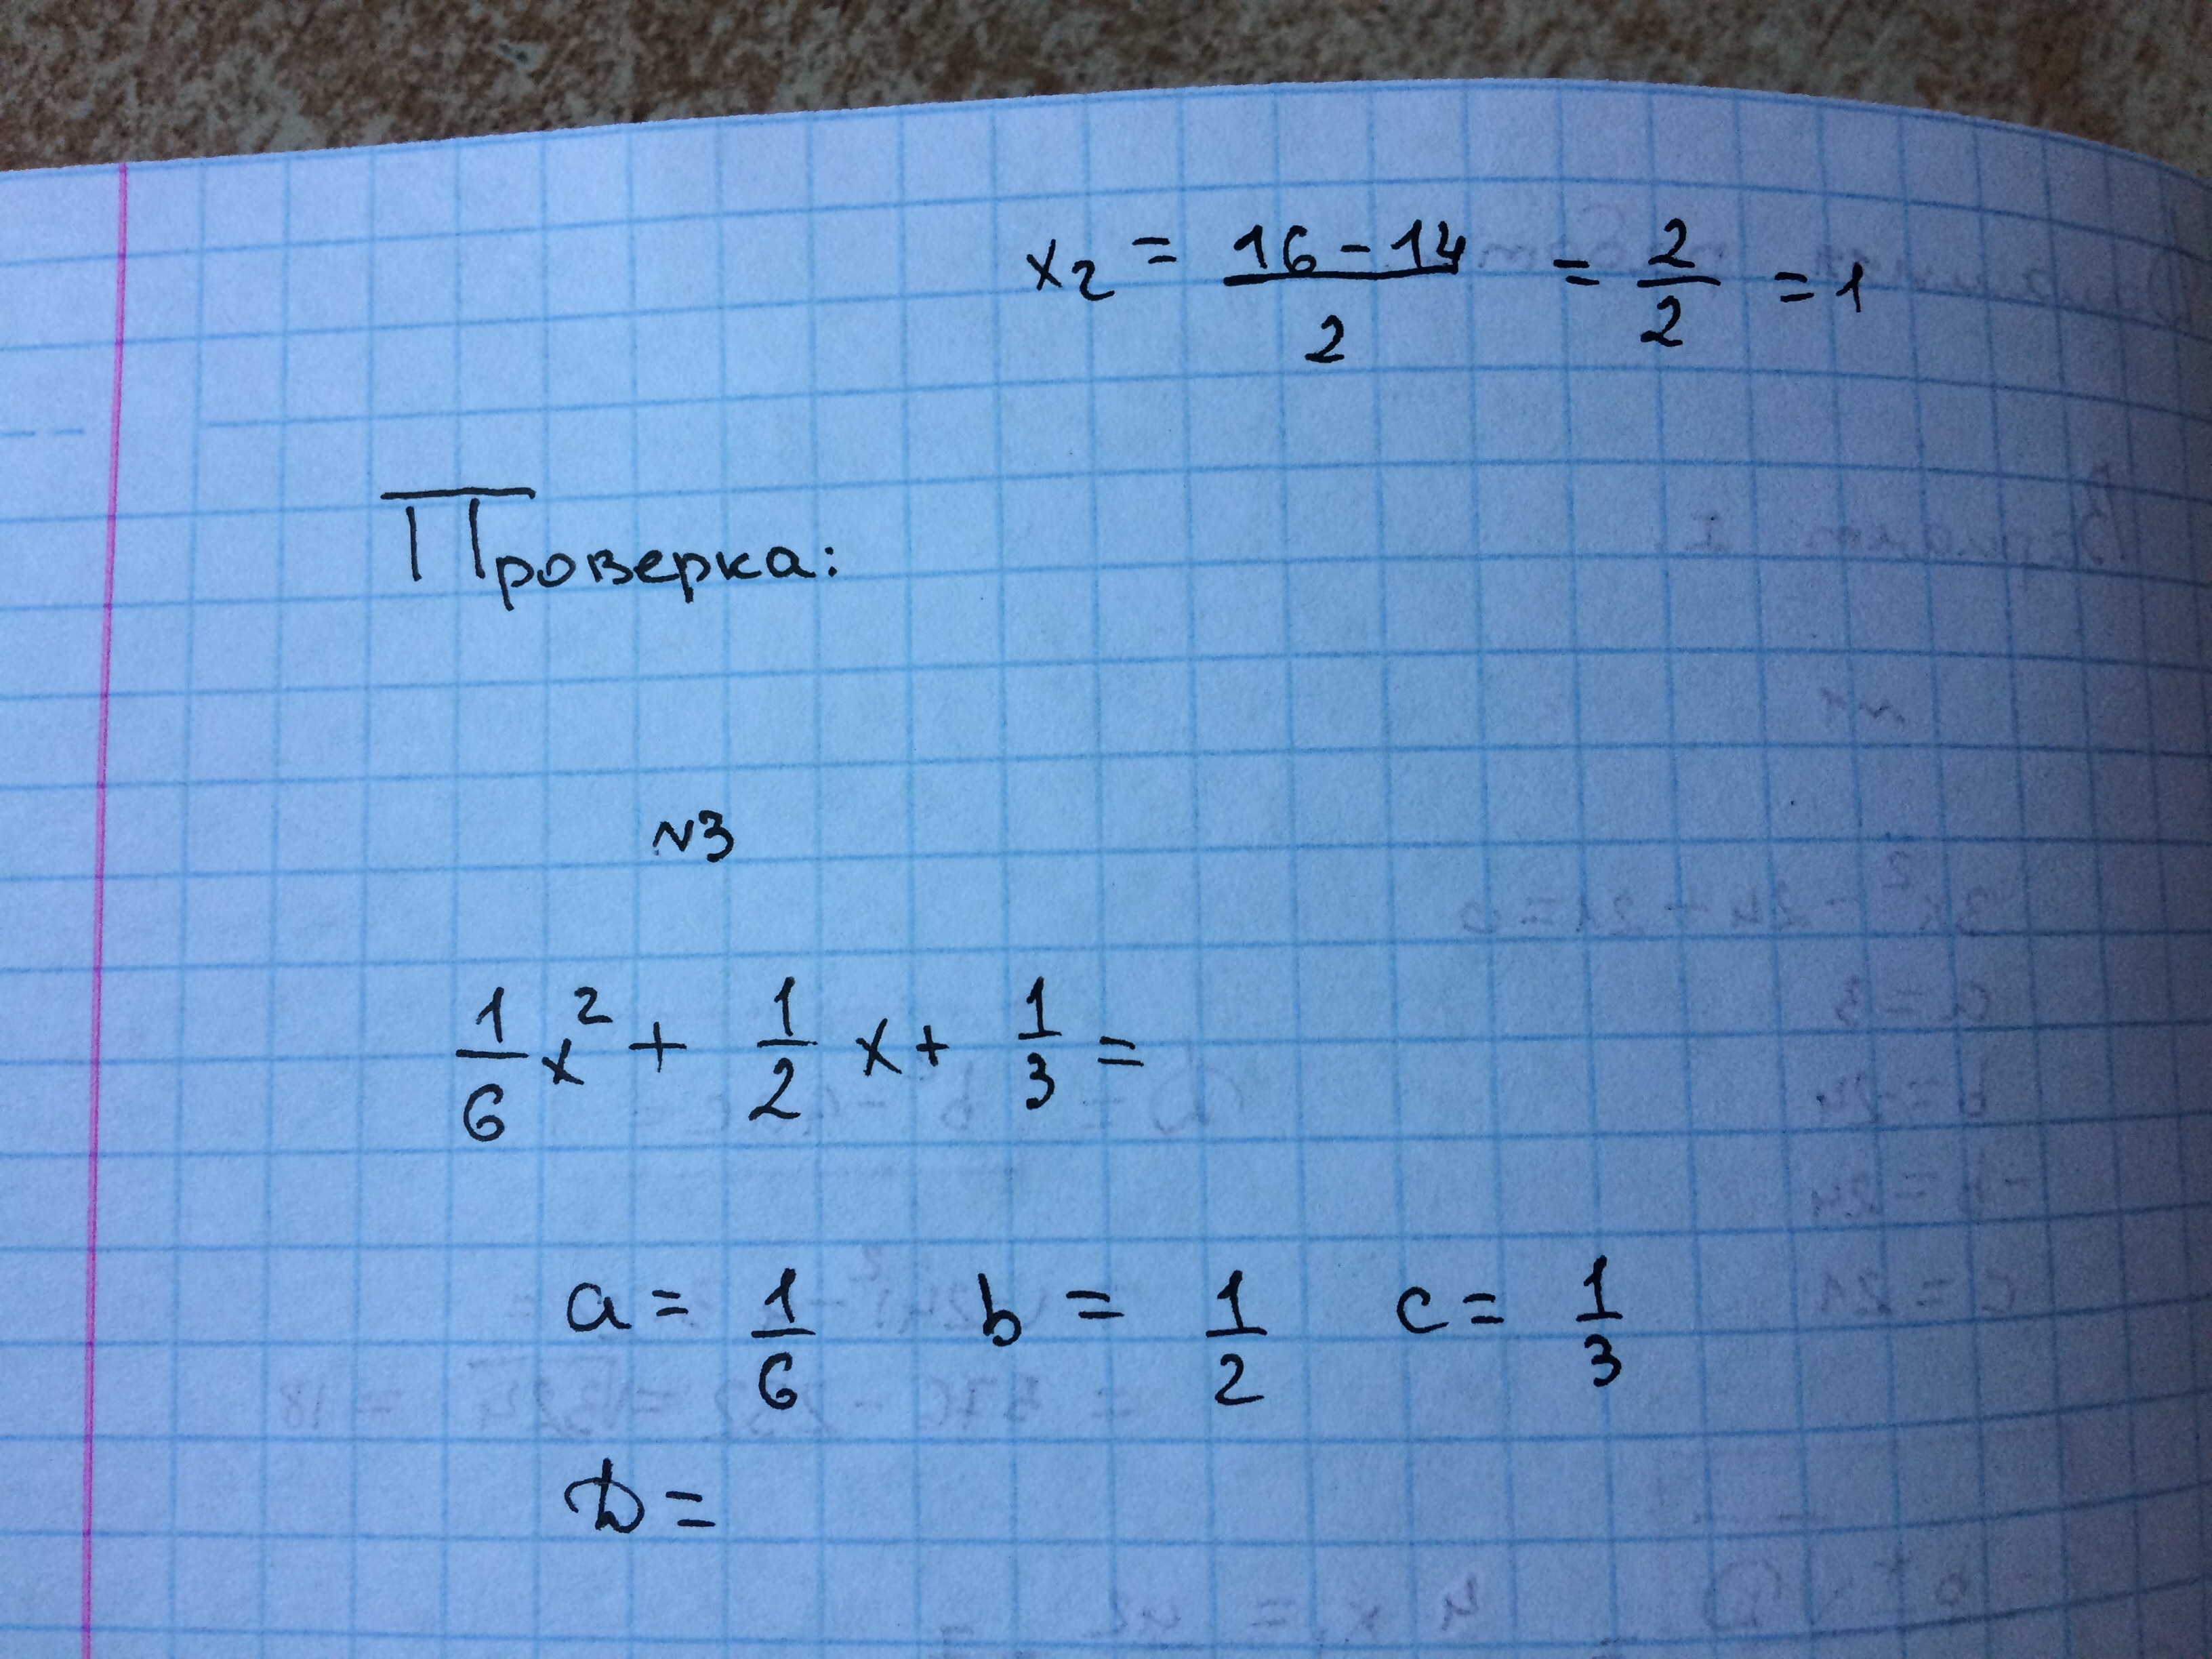 x₂ = (16 - 14)/2 = 2/2 = 1
Проверка:
№3
1/6 x² + 1/2 x + 1/3 =
a = 1/6 b = 1/2 c = 1/3
D =